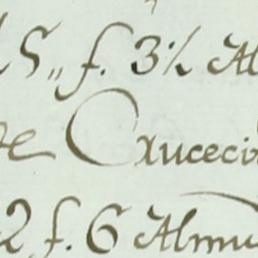 15,, f. 3½ Al
de Cruceci
2 f. 6 Almu